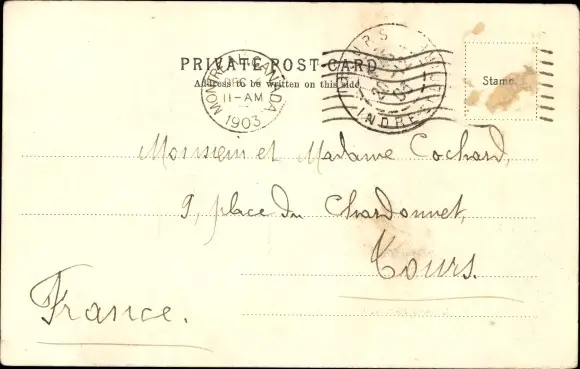 PRIVATE POST CARD
Address to be written on this side.
Stamp.
MONTREAL CANADA
DEC
11-AM
1903
TOURS
INDRE
Monsieur et Madame Cochard,
9, place du Chardonnet,
Tours.
France.